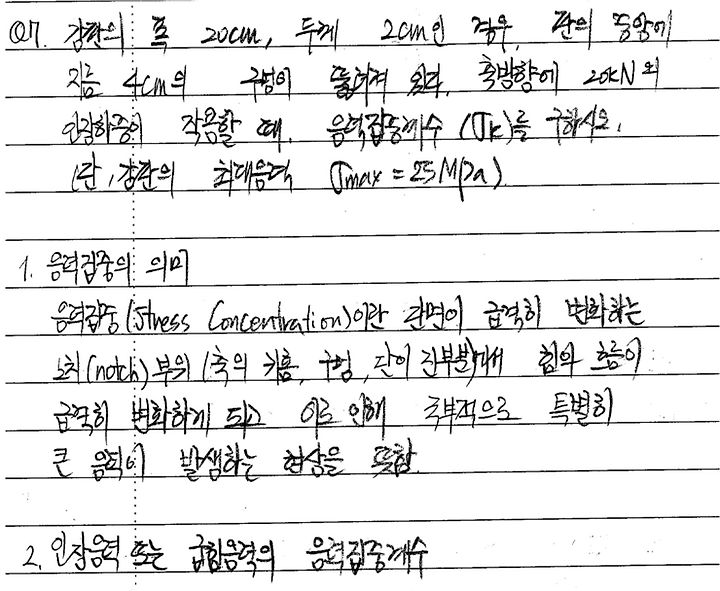 Q7. 강판의 폭 20cm, 두께 2cm인 경우, 판의 중앙에
지름 4cm의 구멍이 뚫려져 있다. 축방향에 20kN의
인장하중이 작용할 때, 응력집중계수 (σk)를 구하시오.
(단, 강판의 최대응력 σmax = 25MPa)
1. 응력집중의 의미
응력집중(Stress Concentration)이란 단면이 급격히 변화하는
노치(notch) 부위 (축의 키홈, 구멍, 단이 진부분)에서 힘의 흐름이
급격히 변화하게 되고 이로 인해 국부적으로 특별히
큰 응력이 발생하는 현상을 뜻함.
2. 인장응력 또는 굽힘응력의 응력집중계수